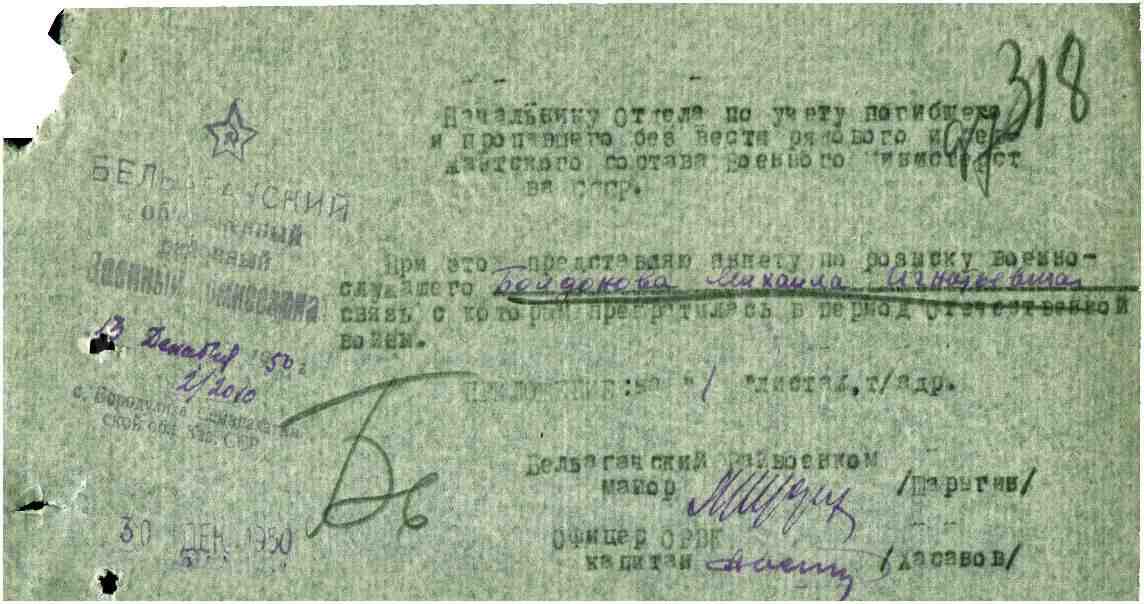 318
Начальнику Отдела по учету погибшего
и пропавшего без вести рядового и сер-
жантского состава Военного Министерст
ва СССР.
БЕЛЬАГАЧСКИЙ
объединенный
районный
Военный Комиссариат
13 Декабря 1950 г.
2/2010
с. Бородулиха Семипалатин
ской обл. Каз. ССР
При этом представляю анкету по розыску военно-
служащего Бойдонова Михаила Игнатьевича
связь с которым прекратилась в период Отечественной
войны.
ПРИЛОЖЕНИЕ: на "1 "листах, т/адр.
Бельагачский Райвоенком
майор /Шарыгин/
Офицер ОРВК
капитан /Хасанов/
Бо
30 ДЕК 1950